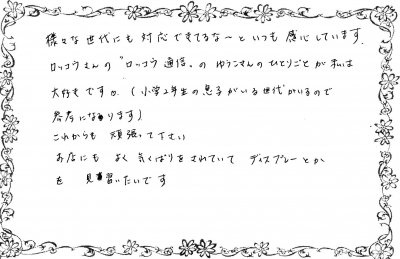 様々な世代にも対応できてるな〜といつも感心しています。
ロッコウさんの"ロッコウ通信"のゆうこさんのひとりごとが私は
大好きですo(小学2年生の息子がいる世代がいるので
参考になります)
これからも頑張って下さい
お店にもよく気くばりをされていてディスプレーとか
を見習いたいです